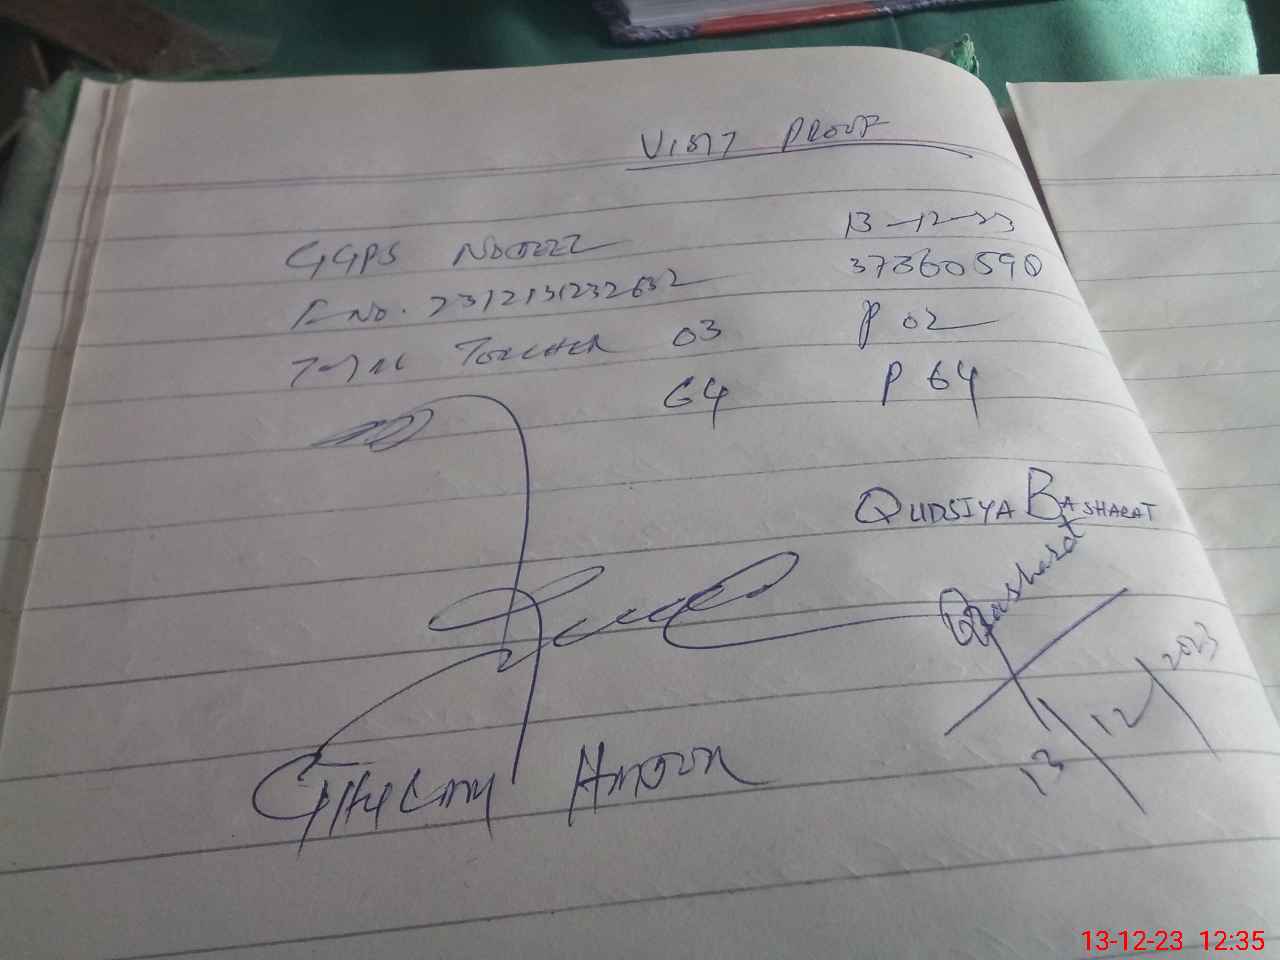 VISIT PROOF
13-12-23
GGPS
37360590
F No. 2312131232632
Total Teacher 03
P 02
64
P 64
QUDSIYA BASHARAT
QBasharat
13/12/2023
GHULAM
13-12-23 12:35